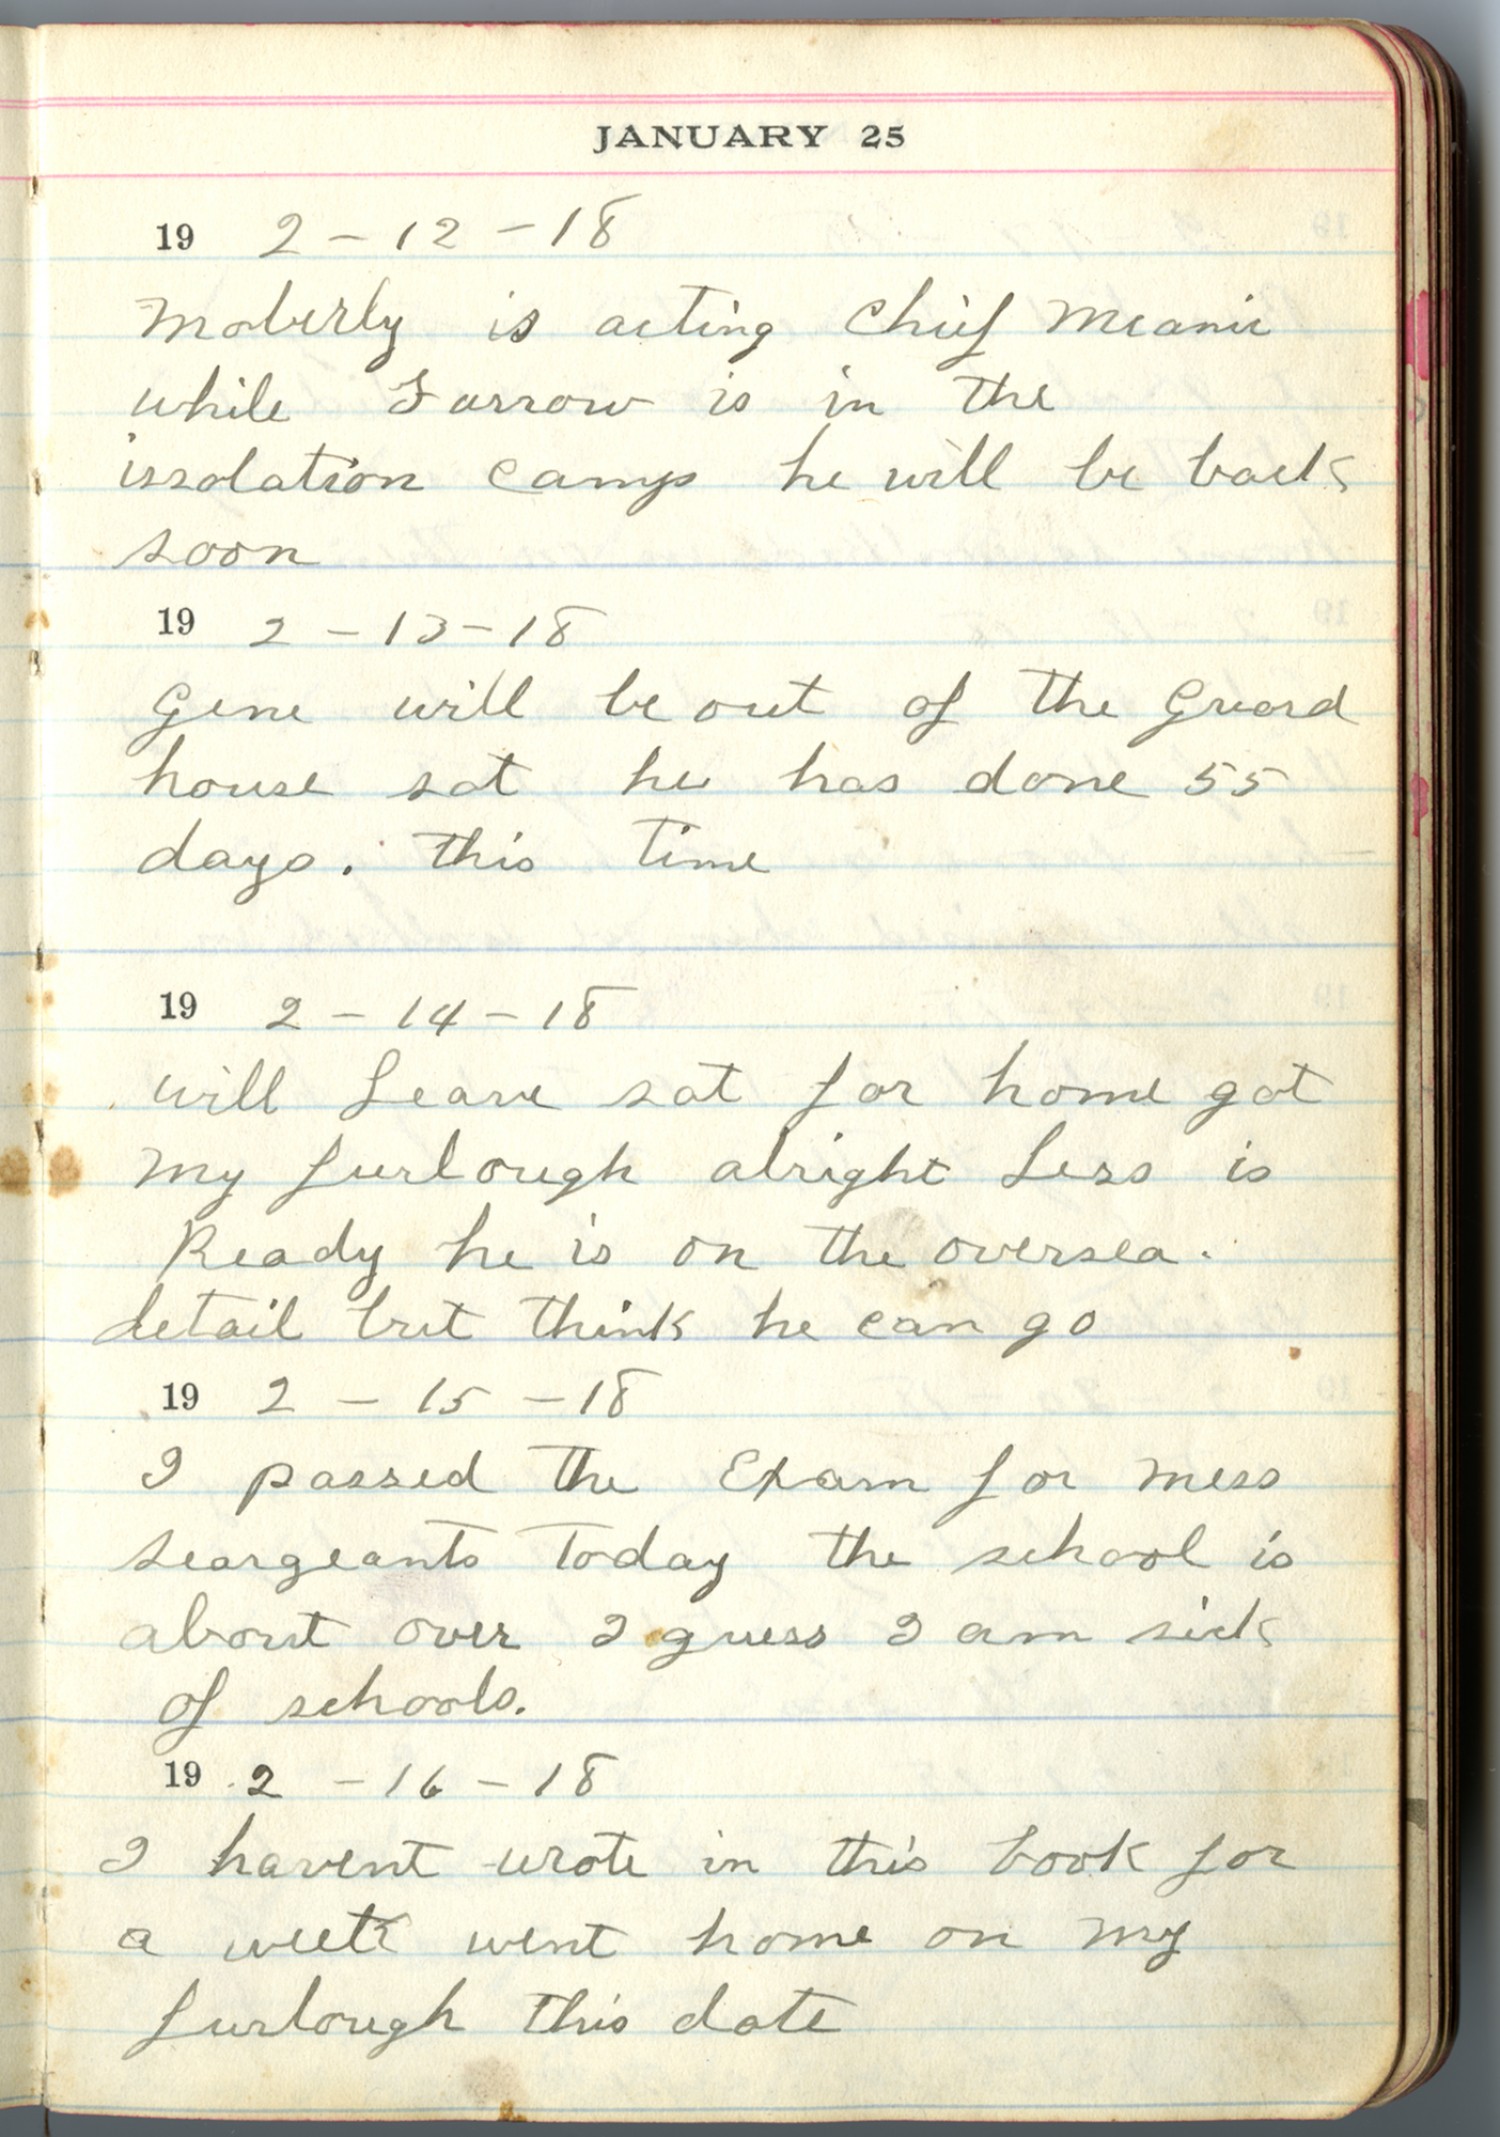 JANUARY 25
19 2 - 12 - 18
Moberly is acting Chief Mcanic
while Farrow is in the
issolation Camp he will be back
soon
19 2 - 13 - 18
Gene will be out of the Guard
house sat he has done 55
days. this time
19 2 - 14 - 18
will Leave sat for home got
my furlough alright Less is
Ready he is on the oversea.
detail but think he can go
19 2 - 15 - 18
I passed the Exam for mess
seargeants today the school is
about over I guess I am sick
of schools.
19 2 - 16 - 18
I havent wrote in this book for
a week went home on my
furlough this date